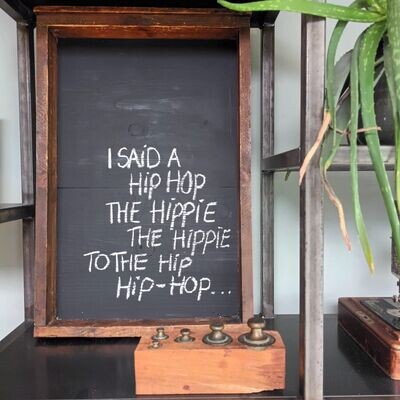 I SAID A
HIP HOP
THE HIPPIE
THE HIPPIE
TO THE HIP
HIP-HOP...